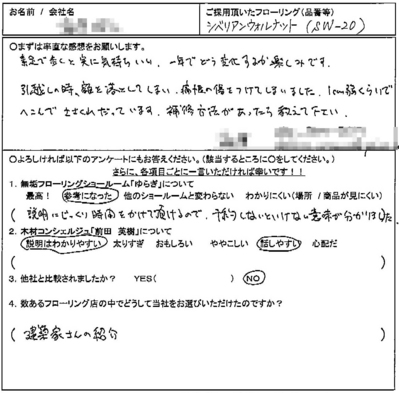 お名前 / 会社名
ご採用頂いたフローリング(品番等)
シベリアンウォルナット (SW-20)
〇まずは率直な感想をお願いします。
素足で歩くと実に気持ちいい。一年でどう変化するか楽しみです。
引越しの時、額を落としてしまい、痛恨の傷をつけてしまいました。1cm弱くらいで
へこんでささくれだっています。補修方法があったら教えて下さい。
〇よろしければ以下のアンケートにもお答えください。(該当するところに〇をしてください。)
さらに、各項目ごとに一言いただければ幸いです!!
1. 無垢フローリングショールーム「ゆらぎ」について
最高! 参考になった 他のショールームと変わらない わかりにくい(場所 / 商品が見にくい)
(説明にじっくり時間をかけて頂けるので、予約しないといけない意味が分かりました)
2. 木材コンシェルジュ「前田 英樹」について
説明はわかりやすい 太りすぎ おもしろい ややこしい 話しやすい 心配だ
( )
3. 他社と比較されましたか? YES( ) NO
4. 数あるフローリング店の中でどうして当社をお選びいただけたのですか?
(建築家さんの紹介 )